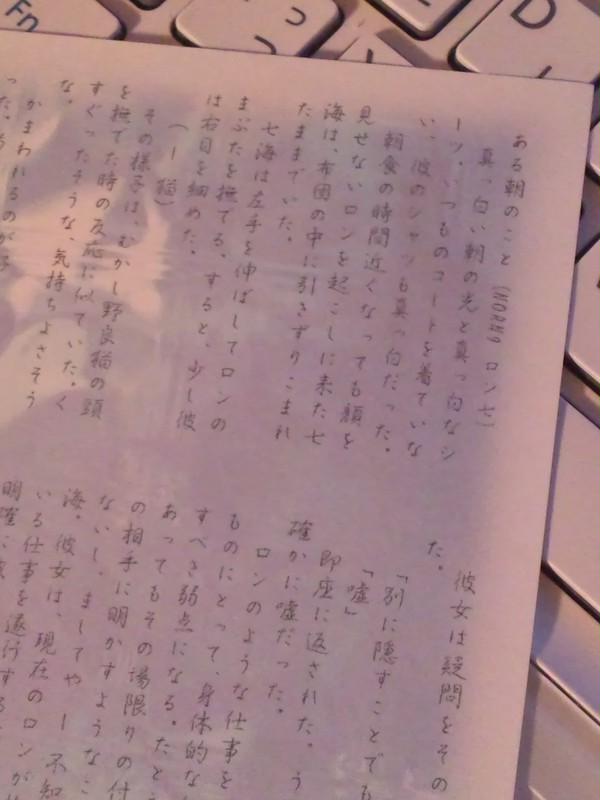 ある朝のこと (NORN9 ロン七)
真っ白い朝の光と真っ白なシ
ーツ。いつものコートを着ていな
い、彼のシャツも真っ白だった。
朝食の時間近くなっても顔を
見せないロンを起こしに来た七
海は、布団の中に引きずりこまれ
たままでいた。
七海は左手を伸ばしてロンの
まぶたを撫でる。すると、少し彼
は右目を細めた。
(ー猫)
その様子は、むかし野良猫の頭
を撫でた時の反応に似ていた。く
すぐったそうな、気持ちよさそう
な。
かまわれるのが
った。
彼女は疑問をその
た。
「別に隠すことでも
「嘘」
即座に返された。う
確かに嘘だった。
ロンのような仕事を
ものにとって、身体的な
すべき弱点になる。たと
あってもその場限りの付
の相手に明かすようなこ
ないし、ましてやー不知
海。彼女は、現在のロンが
いる仕事を遂行する
明確に
Fn
っ
D